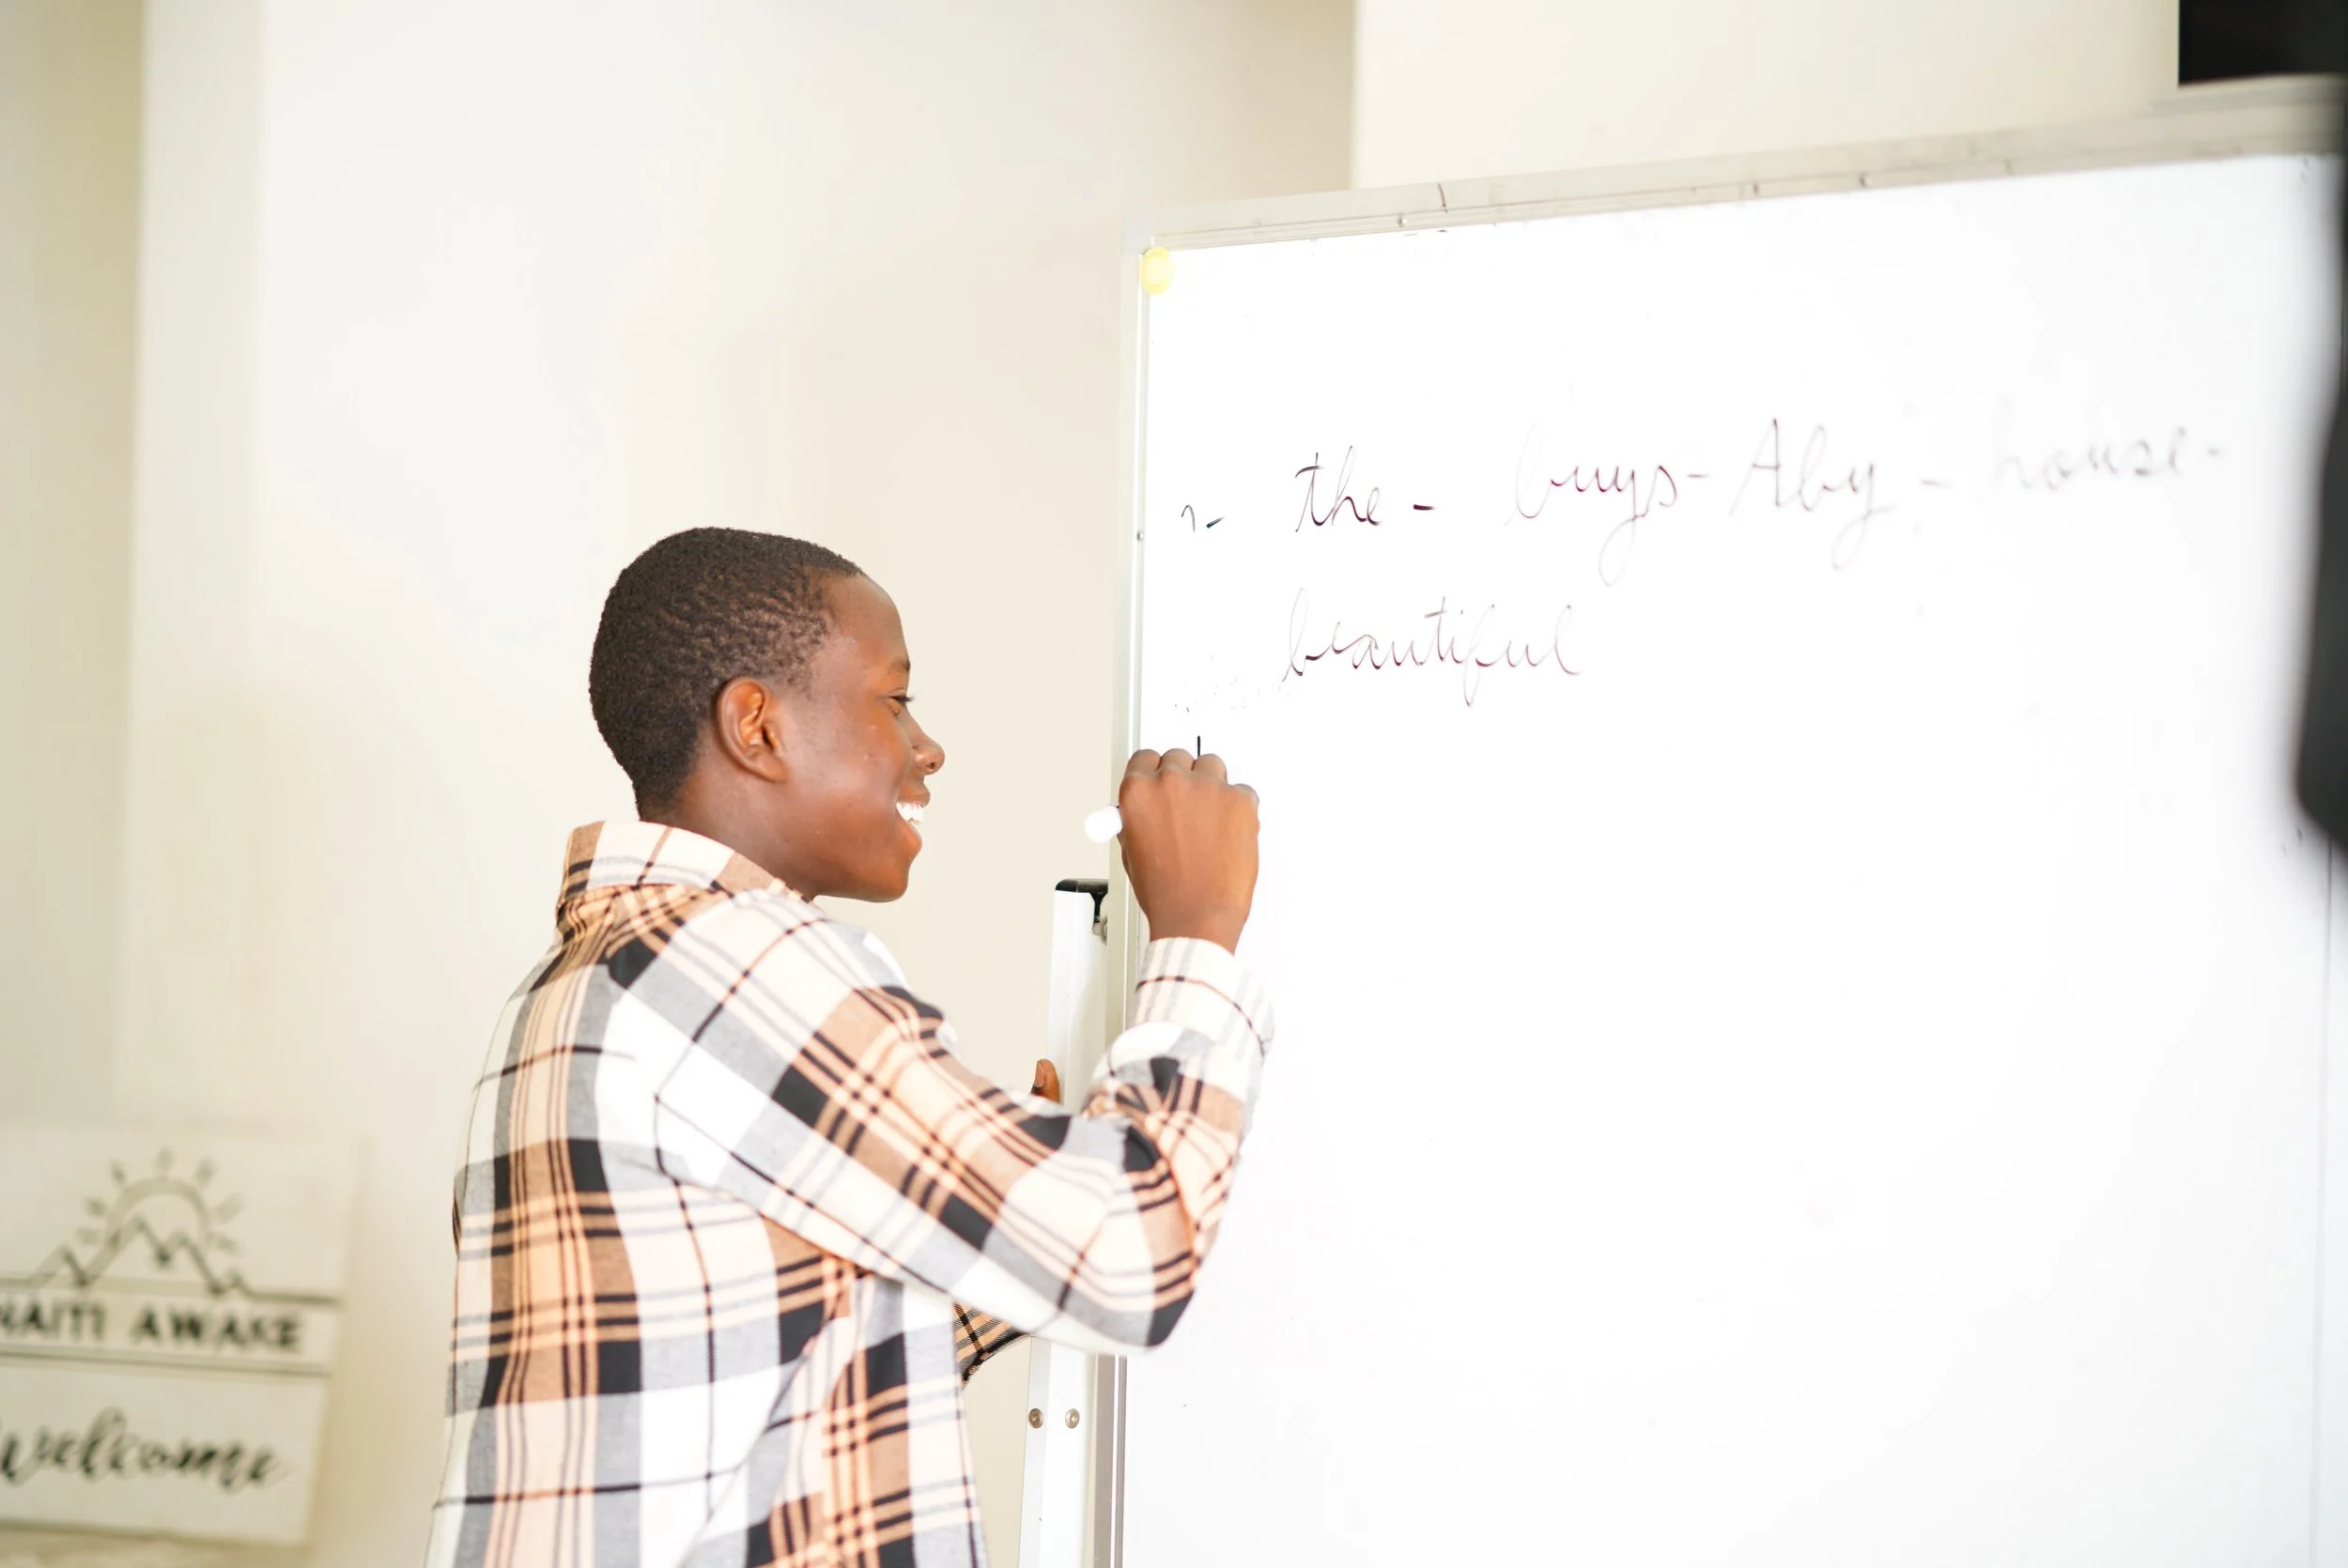 1- the - buys - Aby - house -
beautiful
HAITI AWAKE
welcome